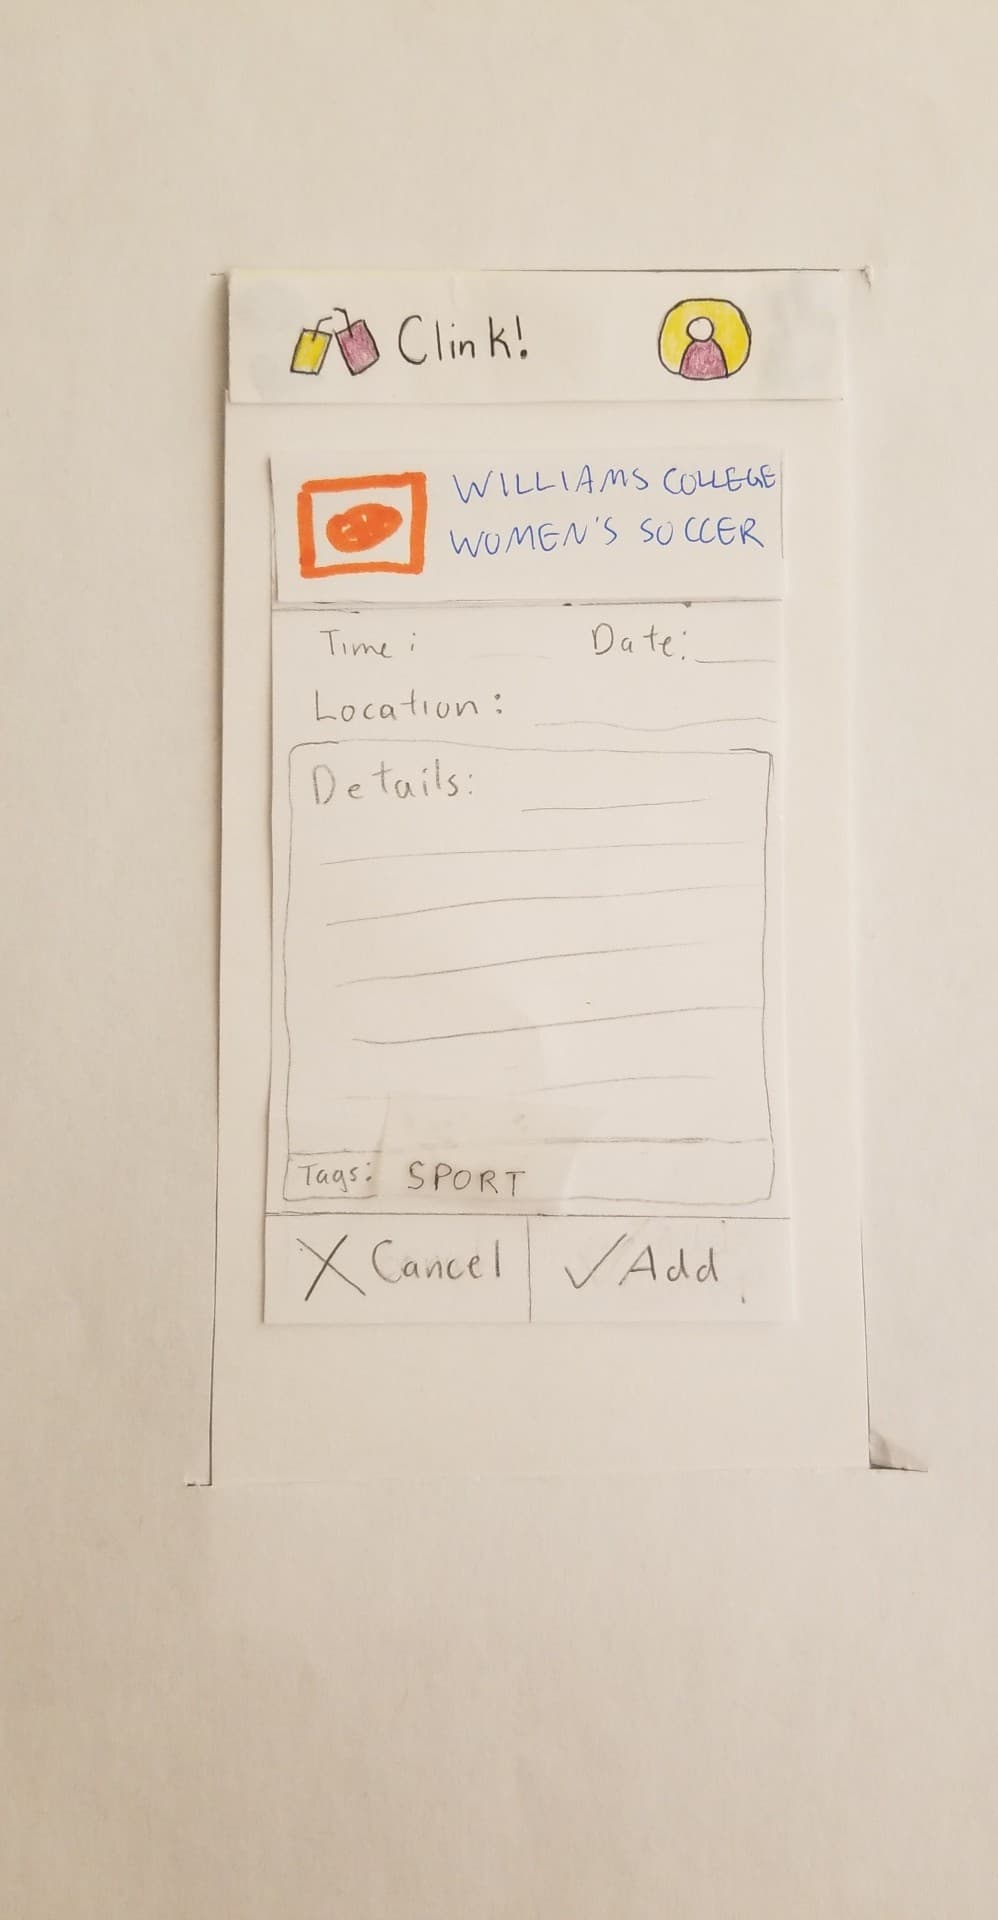 Clink!
WILLIAMS COLLEGE
WOMEN'S SOCCER
Time: Date:
Location:
Details:
Tags: SPORT
X Cancel ✓ Add